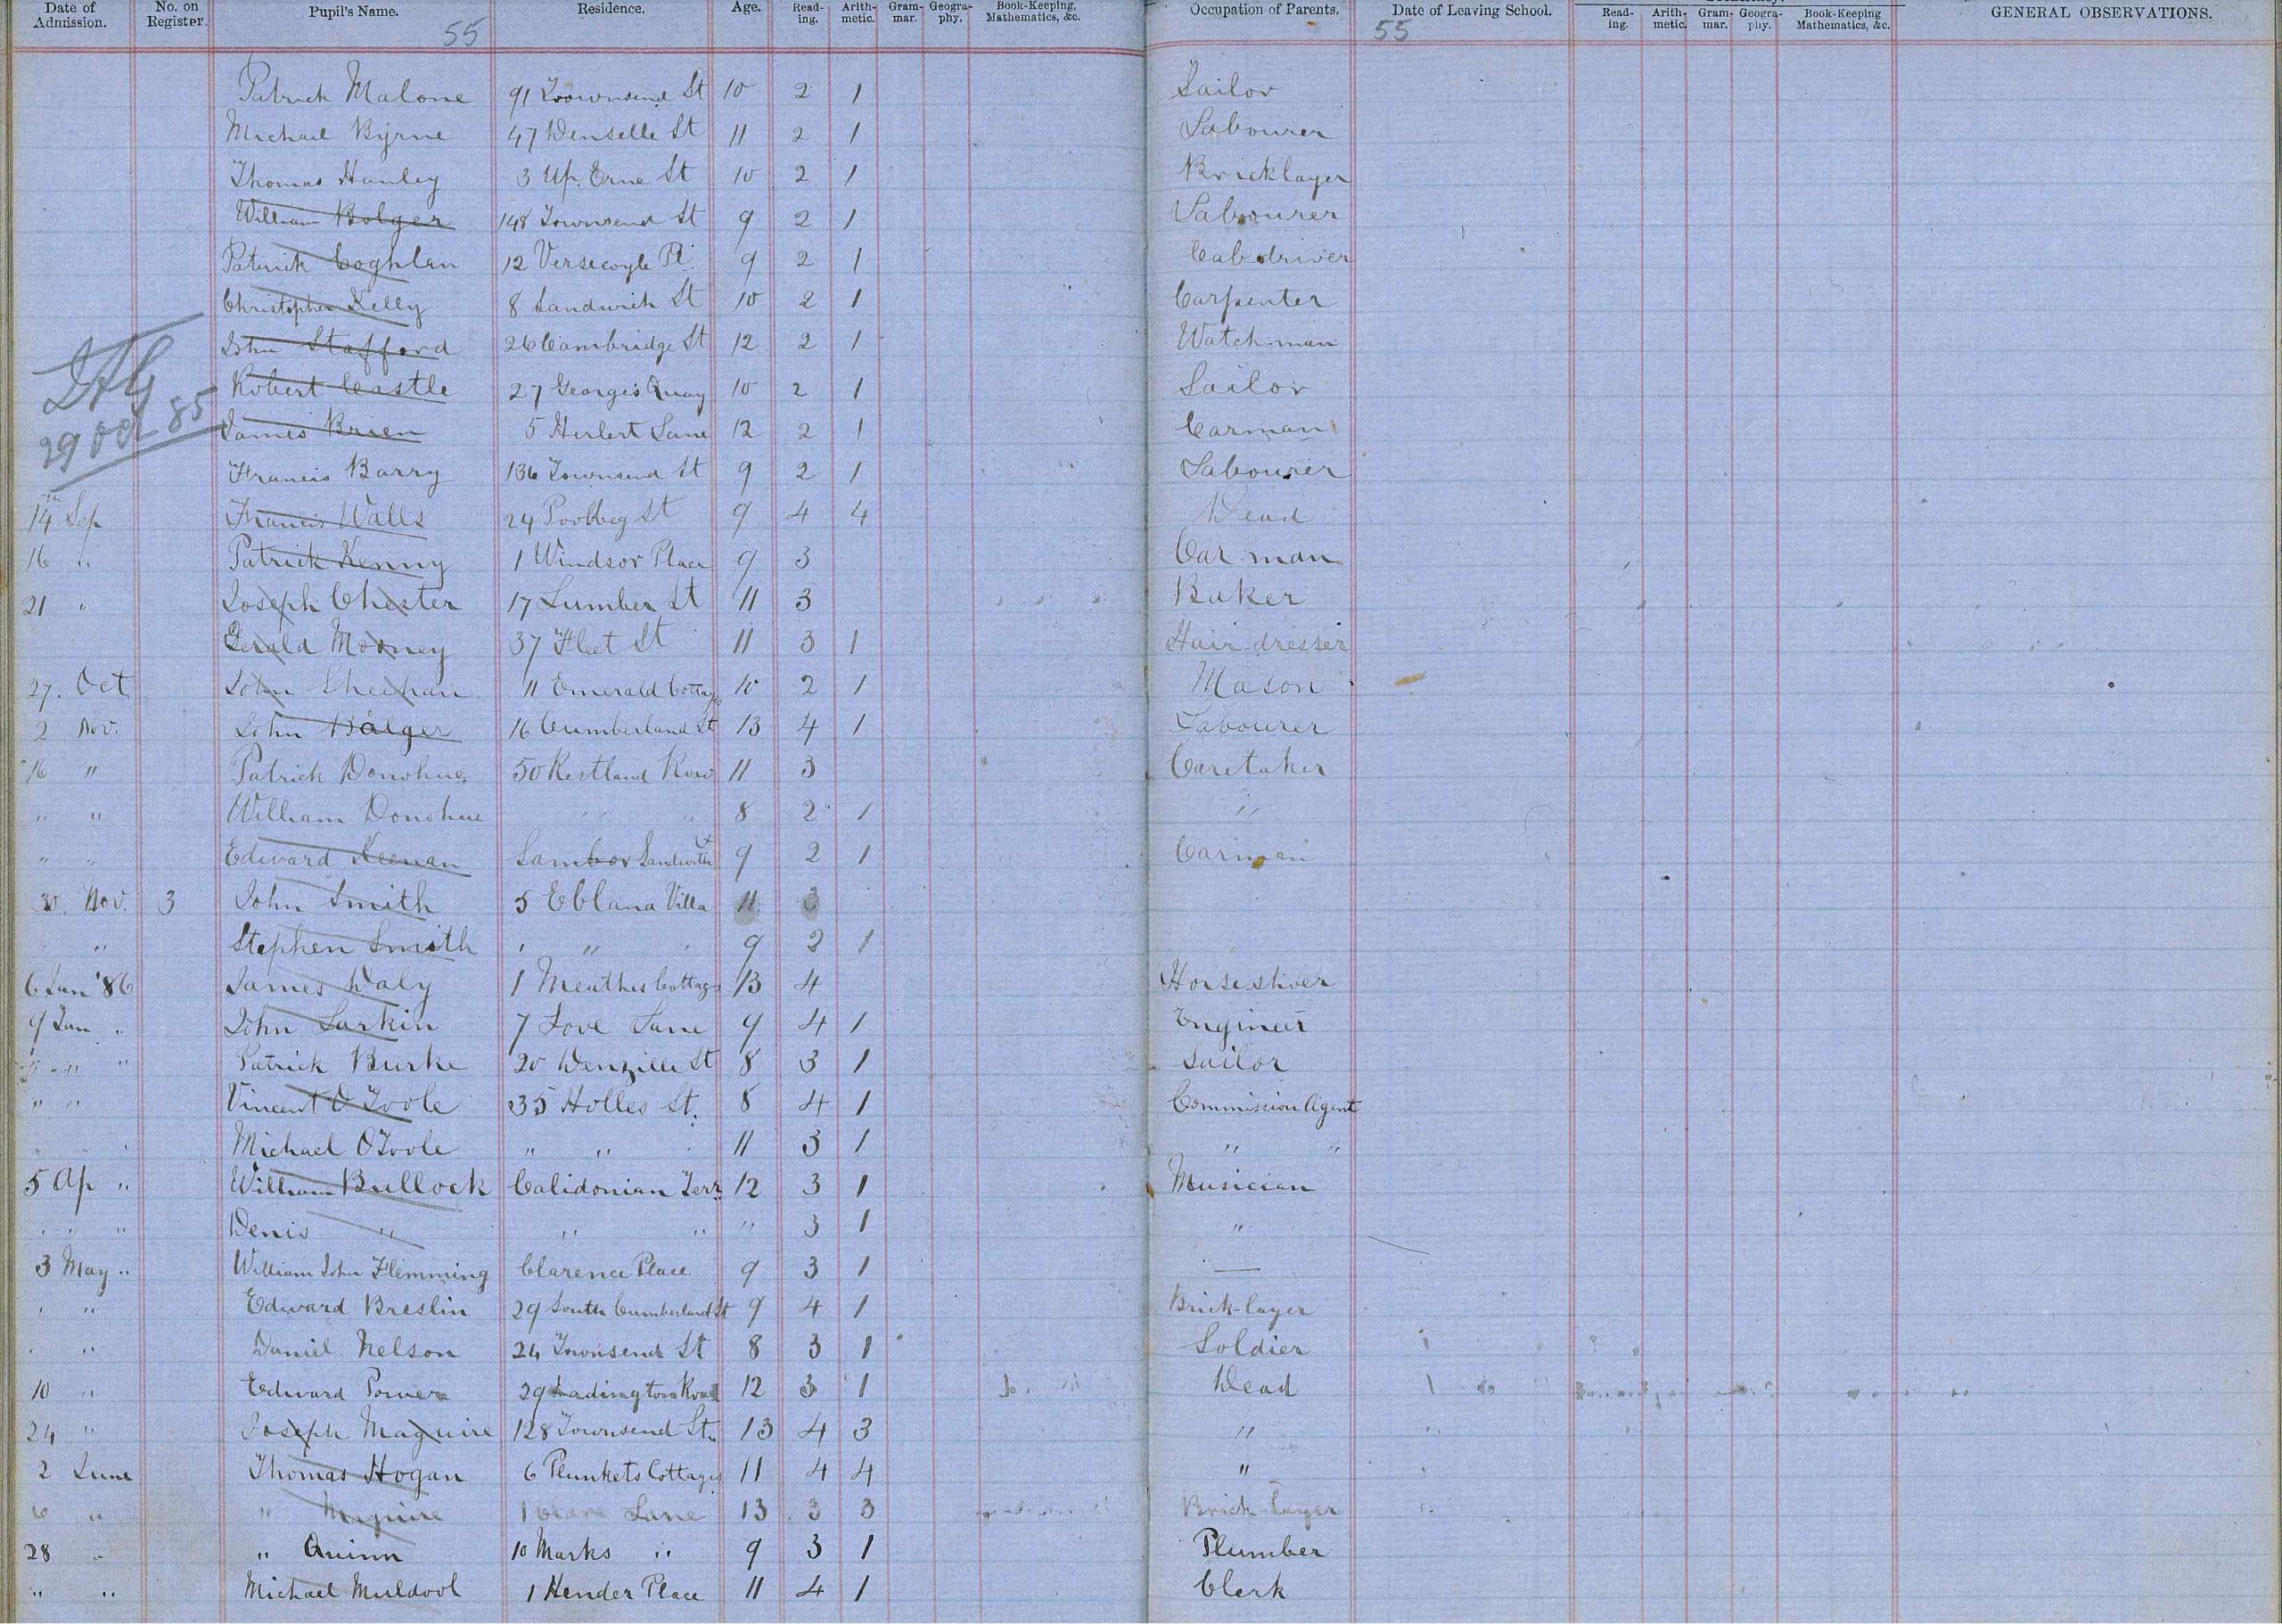 Date of Admission. No. on Register. Pupil's Name. Residence. Age. Read-ing. Arith-metic. Gram-mar. Geogra-phy. Book-Keeping, Mathematics, &c. Occupation of Parents. Date of Leaving School. Read-ing. Arith-metic. Gram-mar. Geogra-phy. Book-Keeping Mathematics, &c. GENERAL OBSERVATIONS.
55 55
Patrick Malone 91 Townsend St 10 2 1 Sailor
Michael Byrne 47 Denselle St 11 2 1 Labourer
Thomas Hanley 3 Up. Erne St 10 2 1 Bricklayer
William Bolger 148 Townsend St 9 2 1 Labourer
Patrick Coghlan 12 Versecoyle Pl. 9 2 1 Cab driver
Christopher Kelly 8 Sandwich St 10 2 1 Carpenter
John Stafford 26 Cambridge St 12 2 1 Watch-man
Robert Castle 27 Georges Quay 10 2 1 Sailor
29 Oct 85 James Brien 5 Herbert Lane 12 2 1 Carman
Francis Barry 136 Townsend St 9 2 1 Labourer
14th Sep Francis Walls 24 Poolbeg St 9 4 4 Dead
16 " Patrick Kenny 1 Windsor Place 9 3 Car man
21 " Joseph Chester 17 Lumber St 11 3 Baker
Gerald Mooney 37 Fleet St 11 3 1 Hair dresser
27. Oct John Sheehan 11 Emerald Cottag 10 2 1 Mason
2 Nov. John Balger 16 Cumberland St 13 4 1 Labourer
16 " Patrick Donohue 50 Restland Row 11 3 Caretaker
" " William Donohue " " 8 2 1 "
" " Edward Keenan Sandwith 9 2 1 Carman
30 Nov. 3 John Smith 5 Eblana Villa 11 3
" Stephen Smith " " " 9 2 1
6 Jan '86 James Daly 1 Meathes Cottage 13 4 Horse shoer
9 Jan " John Larkin 7 Love Lane 9 4 1 Engineer
" " Patrick Burke 20 Denzille St 8 3 1 Sailor
" " Vincent O'Toole 35 Holles St. 8 4 1 Commission Agent
" " Michael O'Toole " " 11 3 1 " "
5 Ap " William Bullock Calidonian Terr. 12 3 1 Musician
" " " Denis " " " " 3 1 "
3 May " William John Flemming Clarence Place 9 3 1 —
" " Edward Breslin 29 South Cumberland St 9 4 1 Brick-layer
" " Daniel Nelson 24 Townsend St 8 3 1 Soldier
10 " Edward Power 29 Road 12 3 1 Dead
24 " Joseph Maguire 128 Townsend St. 13 4 3 "
2 June Thomas Hogan 6 Plunkets Cottages 11 4 4 "
" " Maguire 1 Lane 13 3 3 Brick-layer
28 " " Quinn 10 Marks " 9 3 1 Plumber
" " Michael Muldool 1 Hender Place 11 4 1 Clerk